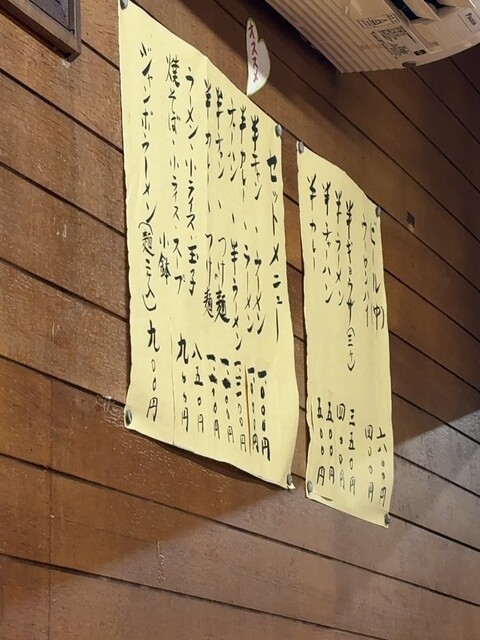 ビール(中) 六〇〇円
四〇〇円
半ギョウザ(三ケ) 三五〇円
半ラーメン 四〇〇円
半チャーハン 五〇〇円
半カレー 五五〇円
オススメ
セットメニュー
半チャン、ラーメン
半カレー、ラーメン
チャーハン、半ラーメン
半チャン、つけ麺
半カレー、つけ麺
ラーメン、小ライス、玉子 八五〇円
焼そば、小ライス、スープ、小鉢
ジャンボラーメン(麺三ツ) 九〇〇円